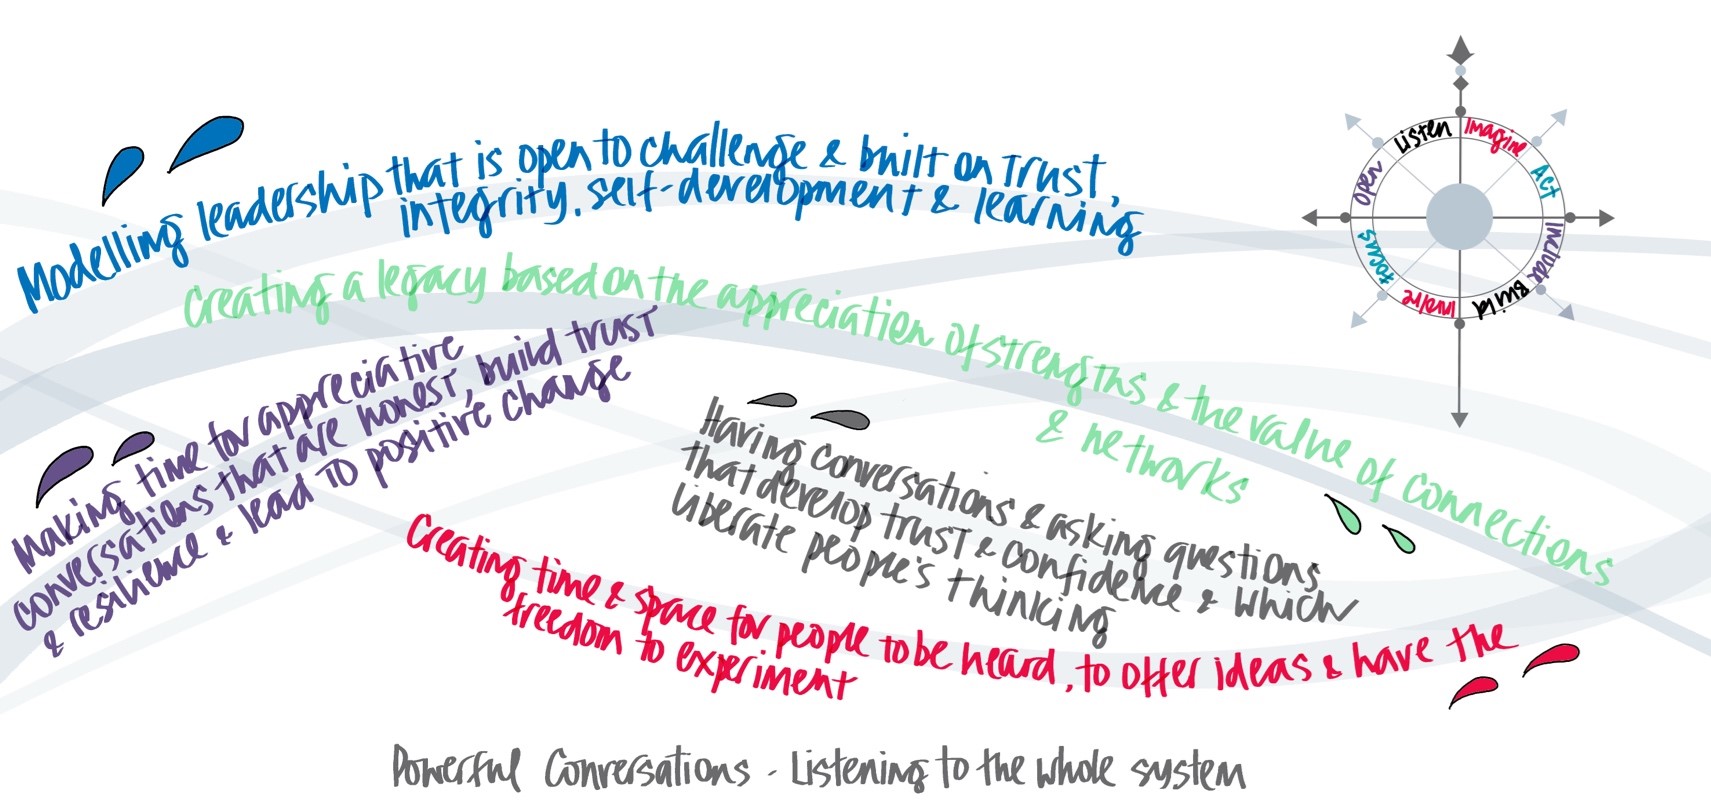 Modelling leadership that is open to challenge & built on trust,
integrity, self-development & learning
Creating a legacy based on the appreciation of strengths & the value of connections
& networks
Making time for appreciative
conversations that are honest, build trust
& resilience & lead to positive change
Having conversations & asking questions
that develop trust & confidence & which
liberate people's thinking
Creating time & space for people to be heard, to offer ideas & have the
freedom to experiment
Listen
Imagine
Act
Include
Build
Involve
Focus
Open
Powerful Conversations - Listening to the whole system